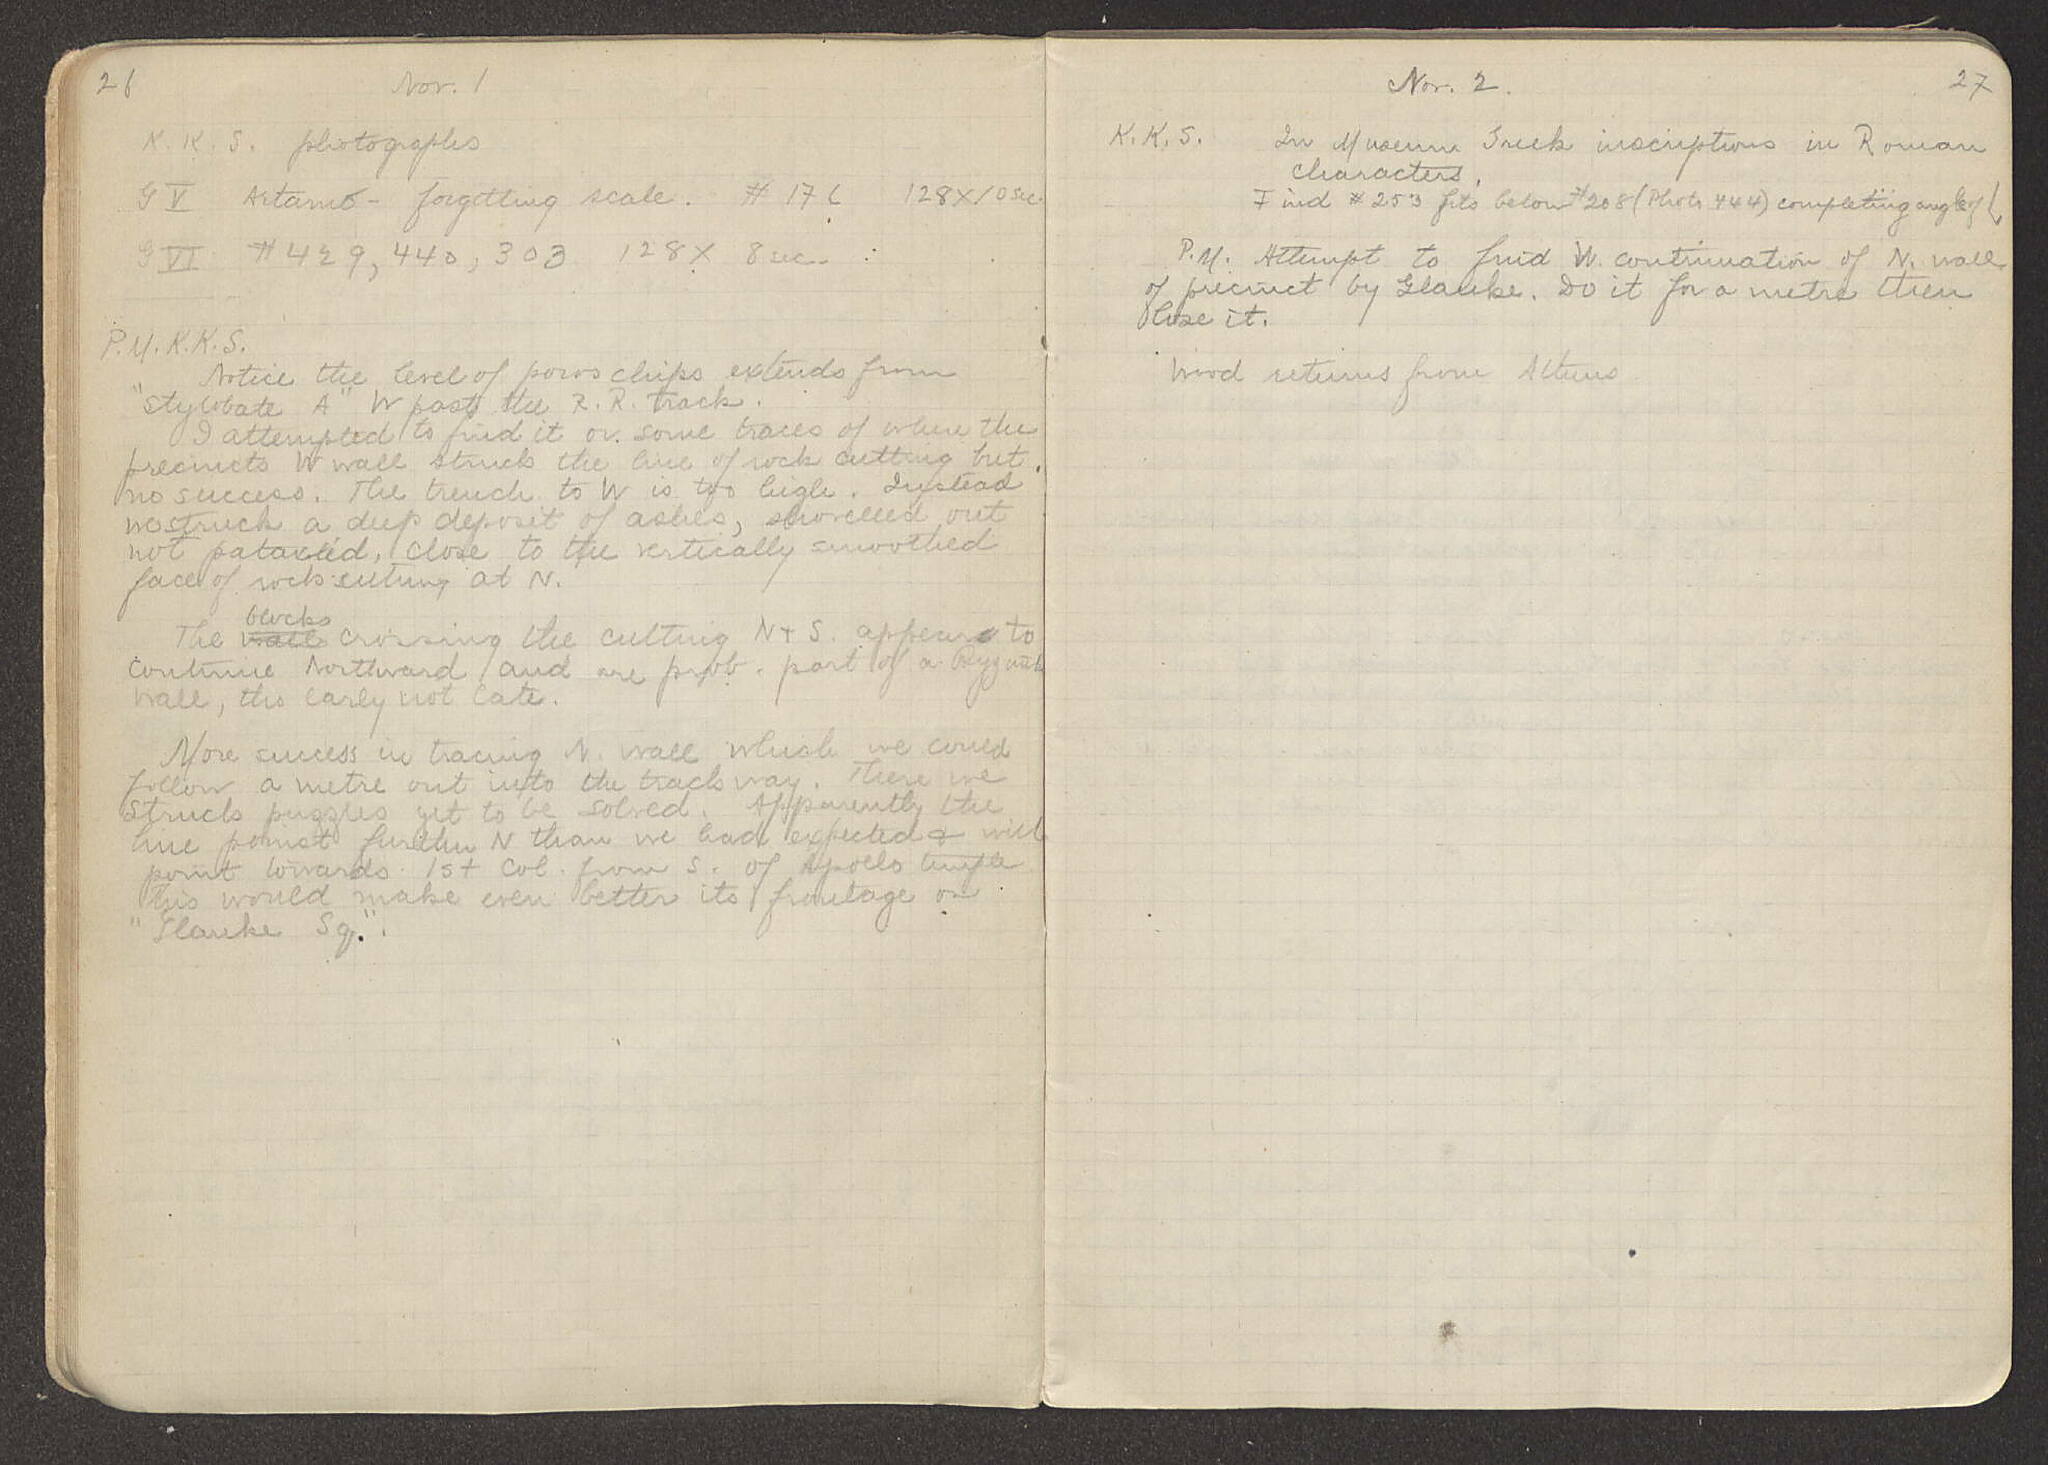 26 Nov. 1
K. K. S. photographs
G V Artamo - forgetting scale. # 176 128 X 10 sec.
G VI # 429, 440, 303 128 X 8 sec.
P.M. K.K.S.
Notice the level of poros chips extends from
"Stylobate A" W past the R.R. track.
I attempted to find it or some traces of where the
precincts W wall struck the line of rock cutting but
no success. The trench to W is too high. Instead
we struck a deep deposit of ashes, shovelled out
not, close to the vertically smoothed
face of rock cutting at N.
blocks
The wall crossing the cutting N + S. appears to
continue Northward and are prob. part of a Byzantine
wall, tho early not late.
More success in tracing N. wall which we could
follow a metre out into the track way. There we
struck puzzles yet to be solved. Apparently the
line points further N than we had expected & will
point towards 1st Col. from S. of Apollo temple
This would make even better its frontage on
"Glauke Sq.".
Nov. 2. 27
K. K. S. In Museum Greek inscriptions in Roman
characters.
Find # 253 fits below #208 (Photo 444) completing angle of
P.M. Attempt to find W. continuation of N. wall
of precinct by Glauke. Do it for a metre then
lose it.
Wood returns from Athens